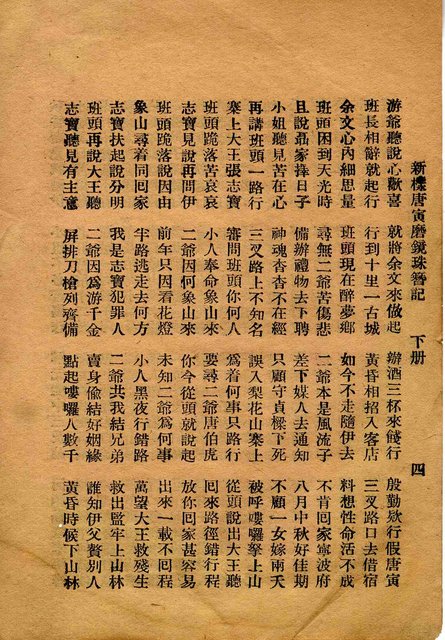 新樸唐寅磨鏡珠簪記 下册 四
游爺聽說心歡喜 就將余文來做起 辦酒三杯來餞行 殷勤欵行假唐寅
班長相辭就起行 行到十里一古城 黃昏相招入客店 三叉路口去借宿
余文心內細思量 班頭現在醉夢鄉 如今不走隨伊去 料想性命活不成
班頭困到天光時 尋無二爺苦傷悲 二爺本是風流子 不肯回家寧波府
且說聶家擇日子 備辦禮物去下聘 差下媒人去通知 八月中秋好佳期
小姐聽見苦在心 神魂杳杳不在經 只顧守貞樑下死 不顧一女嫁兩夭
再講班頭一路行 三叉路上不知名 誤入梨花山寨上 被呼嘍囉拏上山
寨上大王張志寶 審問班頭你何人 爲着何事只路行 從頭說出大王聽
班頭跪落苦哀哀 小人奉命象山來 要尋二爺唐伯虎 囘來路徑錯行程
志寶見說再問伊 二爺因何象山來 你今從頭就說起 放你囘家甚容易
班頭跪落說因由 前年只因看花燈 未知二爺爲何事 出來一載不囘程
象山尋着同囘家 半路逃走去何方 小人黑夜行錯路 萬望大王救殘生
志寶扶起說分明 我是志寶犯罪人 二爺共我結兄弟 救出監牢上山林
班頭再說大王聽 二爺因爲游千金 賣身偷結好姻緣 誰知伊父贅別人
志寶聽見有主意 屏排刀槍列齊備 點起嘍囉八數千 黃昏時候下山林